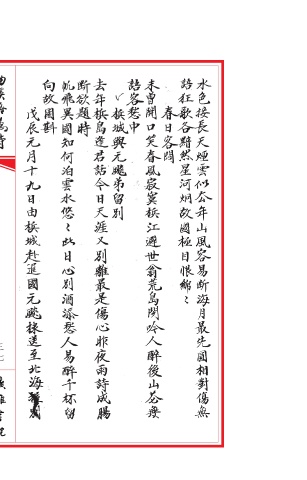 水色接長天煙雲似公年山風容易斷海月最先圓相對傷無
語狂歌各黯然星河炯故國極目恨綿々
春日客悶
未曾開口笑春風寂寞梹江避世翁荒島閒吟人醉後山花無
語客愁中
梹城與元颺弟留別
去年梹島逢君話今日天涯又別離最是傷心昨夜雨詩成腸
斷欲題時
帆飛異國知何泊雲水悠々此日心別酒添愁人易醉千杯留
向故園斟
戊辰元月十九日由梹城赴暹國元颺送至北海